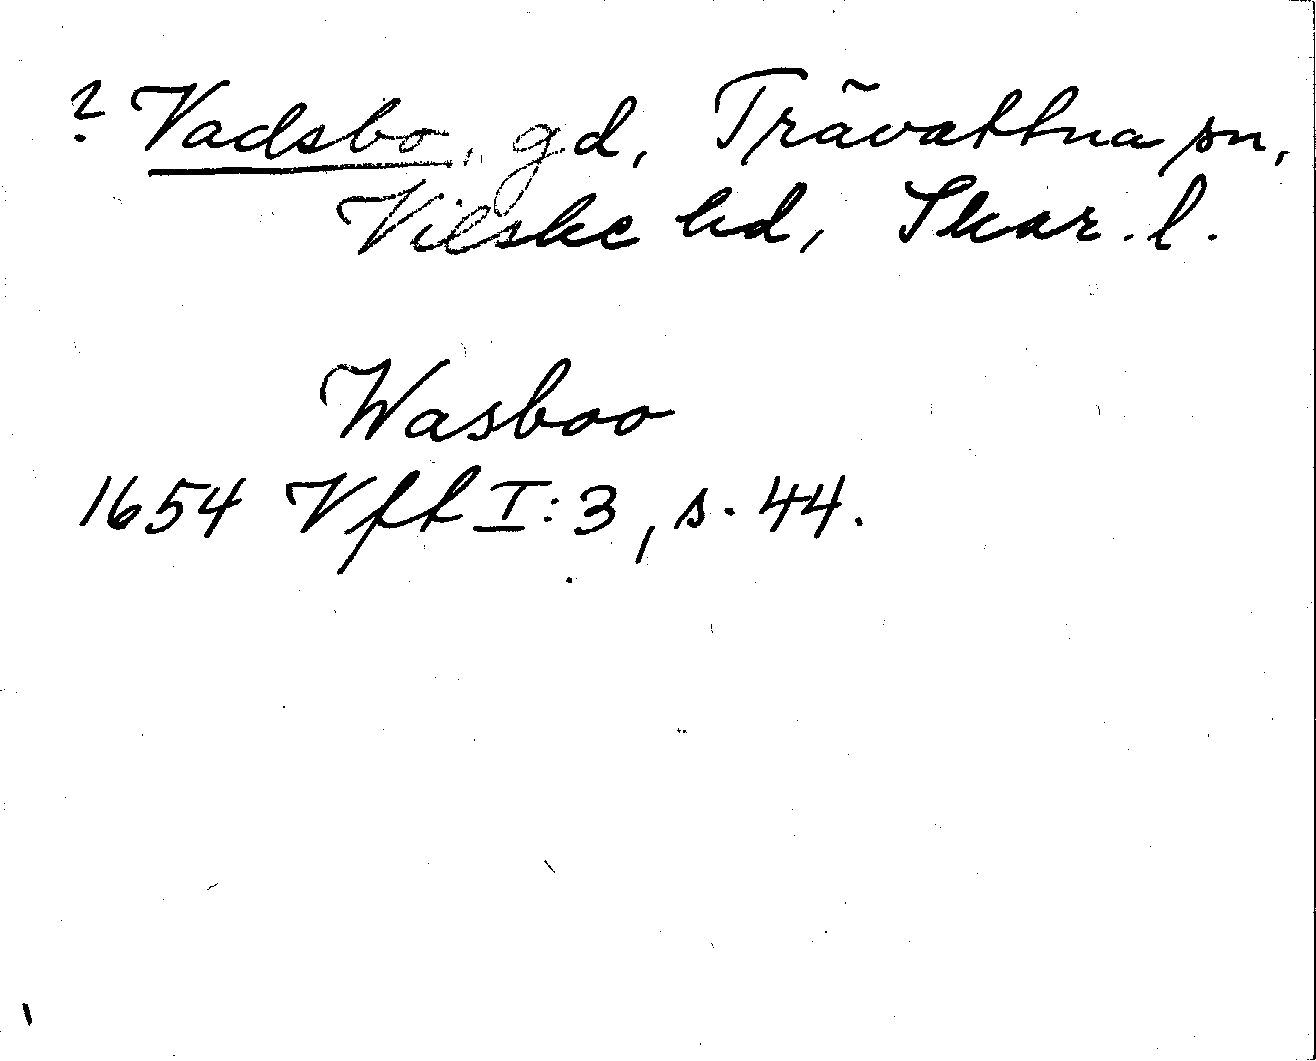 ? Vadsbo, gd, Trävattna sn,
Vilske hd, Skar. l.
Wasboo
1654 Vft I:3, s. 44.